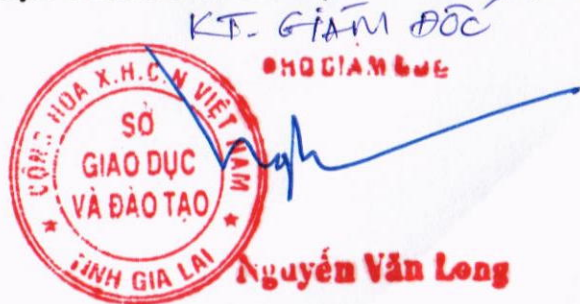 KT. GIÁM ĐỐC
PHÓ GIÁM ĐỐC
CỘNG HÒA X.H.C.N VIỆT NAM
SỞ
GIÁO DỤC
VÀ ĐÀO TẠO
★ TỈNH GIA LAI ★
Nguyễn Văn Long